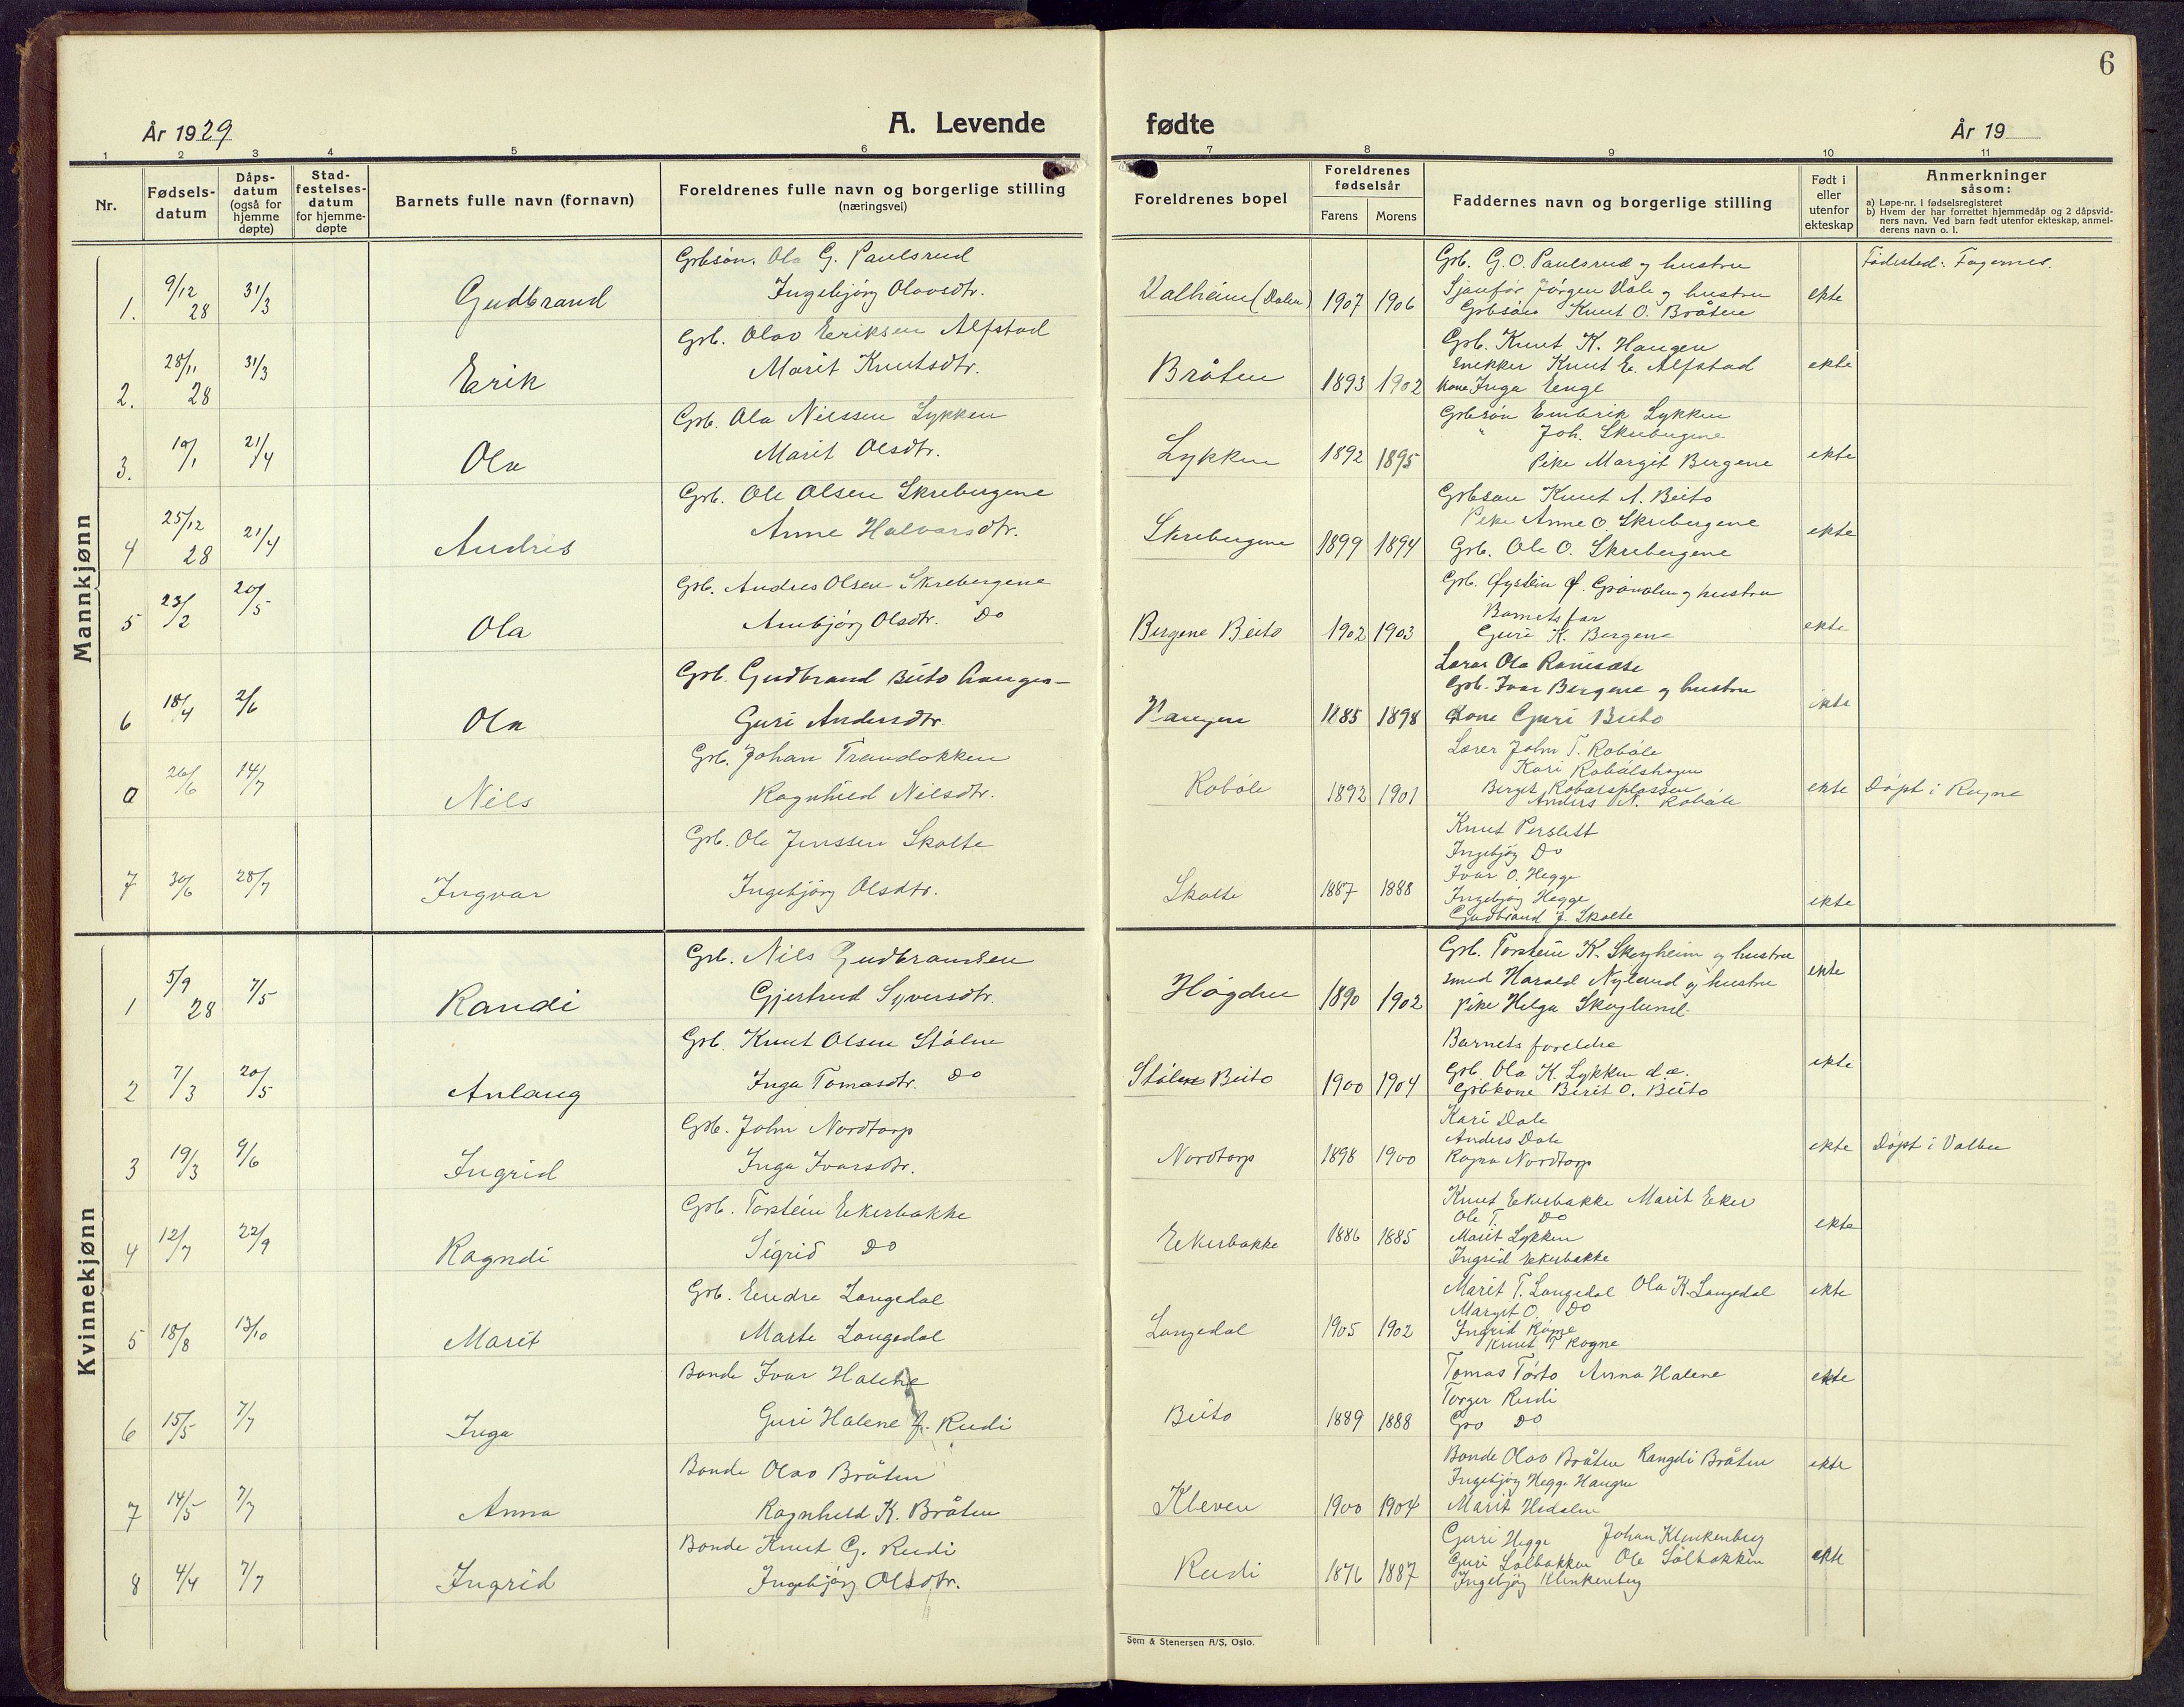 6
År 1929
A. Levende
fødte
År 19
1 2 3 4 5 6 7 8 9 10 11
Nr.
Fødsels-
datum
Dåps-
datum
(også for
hjemme
døpte)
Stad-
festelses-
datum
for hjemme-
døpte
Barnets fulle navn (fornavn)
Foreldrenes fulle navn og borgerlige stilling
(næringsvei)
Foreldrenes bopel
Foreldrenes
fødselsår
Farens Morens
Faddernes navn og borgerlige stilling
Født i
eller
utenfor
ekteskap
Anmerkninger
såsom:
a) Løpe-nr. i fødselsregisteret
b) Hvem der har forrettet hjemmedåp og 2 dåpsvid-
ners navn. Ved barn født utenfor ekteskap, anmel-
derens navn o. l.
Mannkjønn
1. 9/12 28 31/3 Gudbrand
Grbsøn. Ola G. Paulsrud
Ingebjørg Olavsdtr.
Valheim (Dalen) 1907 1906
Grb. G. O. Paulsrud og hustru
Sjauför Jörgen Dale og hustru
Grbsøn Knut O. Bråten
ekte
Fødested: Fagernes.
2. 28/11 28 31/3 Erik
Grb. Olav Eriksen Alfstad
Marit Knutsdtr.
Bråten 1893 1902
Grb. Knut K. Haugen
Snekker Knut E. Alfstad
Kone Inga Eenge
ekte
3. 19/1 21/4 Ola
Grb. Ola Nilssen Lykken
Marit Olsdtr.
Lykken 1892 1895
Grbsøn Embrik Lykken
" Joh. Skrebergene
Pike Margit Bergene
ekte
4 25/12 28 21/4 Andris
Grb. Ole Olsen Skrebergene
Anne Halvorsdtr.
Skrebergene 1899 1894
Grbsøn Knut A. Beito
Pike Anne O. Skrebergene
Grb. Ole O. Skrebergene
ekte
5 23/2 20/5 Ola
Grb. Andres Olsen Skrebergene
Ambjørg Olsdtr. Do
Bergene Beito 1902 1903
Grb. Øystein Ø. Grønolen og hustru
Barnets far
Guri K. Bergene
ekte
6 18/4 2/6 Ola
Grb. Gudbrand Beito Haugen
Guri Andersdtr.
Haugen 1885 1898
Lærar Ola Raniseise
Grb. Ivar Bergene og hustru
Kone Guri Beito
ekte
0 26/6 14/7 Nils
Grb. Johan Trandokken
Ragnhild Nilsdtr.
Robøle 1892 1901
Lærer John T. Robøle
Kari Robølshagen
Berget Robølsplassen
Anders N. Robøle
ekte
Døpt i Rogne
7 30/6 28/7 Ingvar
Grb. Ole Jenssen Skolte
Ingebjørg Olsdtr.
Skolte 1887 1888
Knut Perslett
Ingebjørg Do
Ivar O. Hegge
Ingebjørg Hegge
Gudbrand J. Skolte
ekte
Kvinnekjønn
1 5/9 28 7/5 Randi
Grb. Nils Gudbramsen
Gjertrud Syversdtr.
Høgden 1890 1902
Grb. Torstein K. Skogheim og hustru
Smed Harald Nyland og hustru
Pike Helga Skoglund
ekte
2 7/3 20/5 Anlaug
Grb. Knut Olsen Stølen
Inga Tomasdtr. Do
Stølen Beito 1900 1904
Barnets foreldre
Grb. Ola K. Lykken d.æ.
Grbkone Berit O. Beito
ekte
3 19/3 9/6 Ingrid
Grb. John Nordtorp
Inga Ivarsdtr.
Nordtorp 1898 1900
Kari Dale
Anders Dale
Ragna Nordtorp
ekte
Døpt i Volbu
4 12/7 22/9 Ragndi
Grb. Torstein Ekerbakke
Sigrid Do
Ekerbakke 1886 1885
Knut Ekerbakke Marit Eker
Ole T. Do
Marit Lykken
Ingrid Ekerbakke
ekte
5 18/8 13/10 Marit
Grb. Endre Langedal
Marte Langedal
Langedal 1905 1902
Marit T. Langedal Ola K. Langedal
Margit O. Do
Ingrid Rogne
Knut T Rogne
ekte
6 15/5 7/7 Inga
Bonde Ivar Halene
Guri Halene f. Rudi
Beito 1889 1888
Tomas Førto Anna Halene
Torger Rudi
Gro Do
ekte
7 14/5 7/7 Anna
Bonde Olav Bråten
Ragnhild K. Bråten
Kleven 1900 1904
Bonde Olav Bråten Rangdi Bråten
Ingebjørg Hegge Haugen
Marit Hedalen
ekte
8 4/4 7/7 Ingrid
Bonde Knut G. Rudi
Ingebjørg Olsdtr.
Rudi 1876 1887
Guri Hegge Johan Klinkenberg
Guri Solbakken Ole Solbakken
Ingebjørg Klinkenberg
ekte
Sem & Stenersen A/S, Oslo.